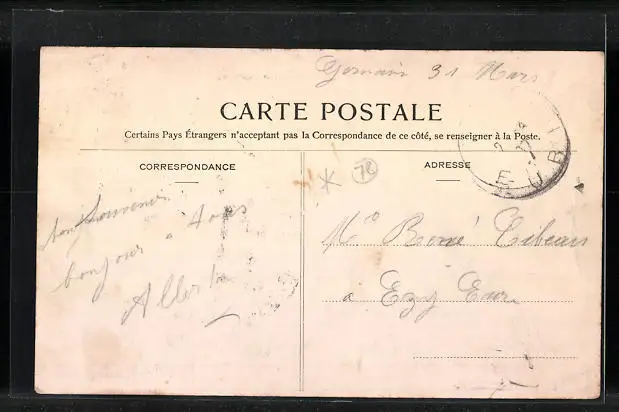 31 Mars
CARTE POSTALE
Certains Pays Étrangers n'acceptant pas la Correspondance de ce côté, se renseigner à la Poste.
CORRESPONDANCE
ADRESSE
78
EU
bon souvenir
bonjour a tous
Albert
René
a Ezy Eure